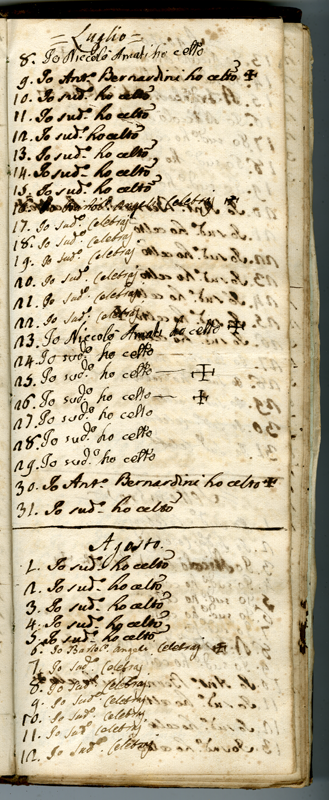 = Luglio =
8. Io Niccolò Amati ho celto
9. Io Ant.º Bernardini ho celto ✠
10. Io sud.º ho celto
11. Io sud.º ho celto
12. Io sud.º ho celto
13. Io sud.º ho celto
14. Io sud.º ho celto
15. Io sud.º ho celto
16. Io Angeli Celebraj ✠
17. Io sud.º Celebraj
18. Io sud.º Celebraj
19. Io sud.º Celebraj
20. Io sud.º Celebraj
21. Io sud.º Celebraj
22. Io sud.º Celebraj
23. Io Niccolò Amati ho celto ✠
24. Io sud.º ho celto
25. Io sud.º ho celto — ✠
26. Io sud.º ho celto — ✠
27. Io sud.º ho celto
28. Io sud.º ho celto
29. Io sud.º ho celto
30. Io Ant.º Bernardini ho celto ✠
31. Io sud.º ho celto
Agosto.
1. Io sud.º ho celto
2. Io sud.º ho celto
3. Io sud.º ho celto
4. Io sud.º ho celto
5. Io sud.º ho celto
6. Io Bartol.º Angeli Celebraj ✠
7. Io sud.º Celebraj
8. Io sud.º Celebraj
9. Io sud.º Celebraj
10. Io sud.º Celebraj
11. Io sud.º Celebraj
12. Io sud.º Celebraj